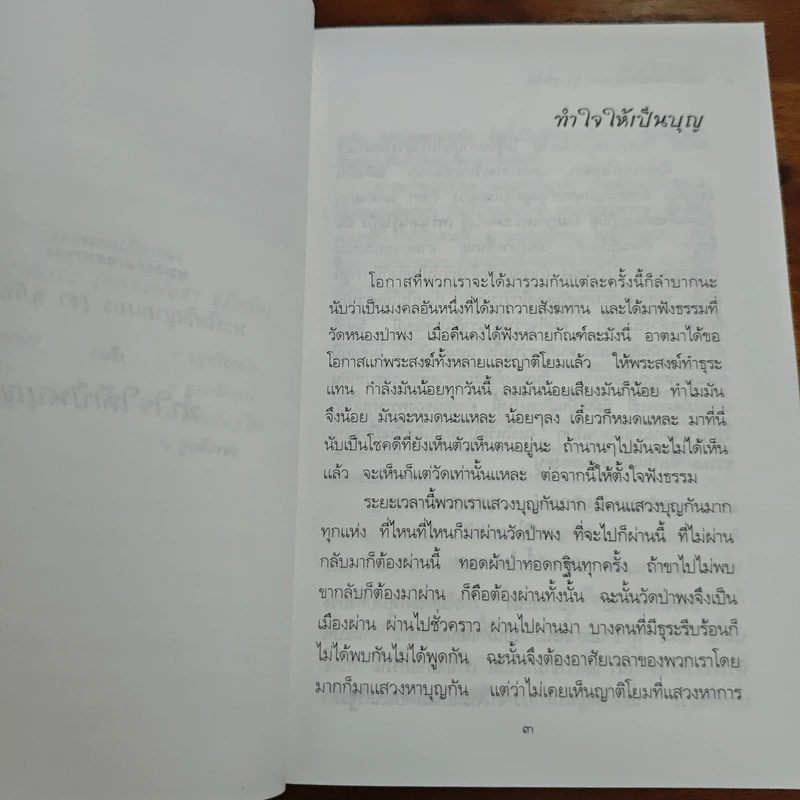 ทำใจให้เป็นบุญ
โอกาสที่พวกเราจะได้มารวมกันแต่ละครั้งนี้ก็ลำบากนะ
นับว่าเป็นมงคลอันหนึ่งที่ได้มาถวายสังฆทาน และได้มาฟังธรรมที่
วัดหนองป่าพง เมื่อคืนคงได้ฟังหลายกัณฑ์ละมังนี่ อาตมาได้ขอ
โอกาสแก่พระสงฆ์ทั้งหลายและญาติโยมแล้ว ให้พระสงฆ์ทำธุระ
แทน กำลังมันน้อยทุกวันนี้ ลมมันน้อยเสียงมันก็น้อย ทำไมมัน
จึงน้อย มันจะหมดนะแหละ น้อยๆลง เดี๋ยวก็หมดแหละ มาที่นี่
นับเป็นโชคดีที่ยังเห็นตัวเห็นตนอยู่นะ ถ้านานๆไปมันจะไม่ได้เห็น
แล้ว จะเห็นก็แต่วัดเท่านั้นแหละ ต่อจากนี้ให้ตั้งใจฟังธรรม
ระยะเวลานี้พวกเราแสวงบุญกันมาก มีคนแสวงบุญกันมาก
ทุกแห่ง ที่ไหนที่ไหนก็มาผ่านวัดป่าพง ที่จะไปก็ผ่านนี้ ที่ไม่ผ่าน
กลับมาก็ต้องผ่านนี้ ทอดผ้าป่าทอดกฐินทุกครั้ง ถ้าขาไปไม่พบ
ขากลับก็ต้องมาผ่าน ก็คือต้องผ่านทั้งนั้น ฉะนั้นวัดป่าพงจึงเป็น
เมืองผ่าน ผ่านไปชั่วคราว ผ่านไปผ่านมา บางคนที่มีธุระรีบร้อนก็
ไม่ได้พบกันไม่ได้พูดกัน ฉะนั้นจึงต้องอาศัยเวลาของพวกเราโดย
มากก็มาแสวงหาบุญกัน แต่ว่าไม่เคยเห็นญาติโยมที่แสวงหาการ
๓